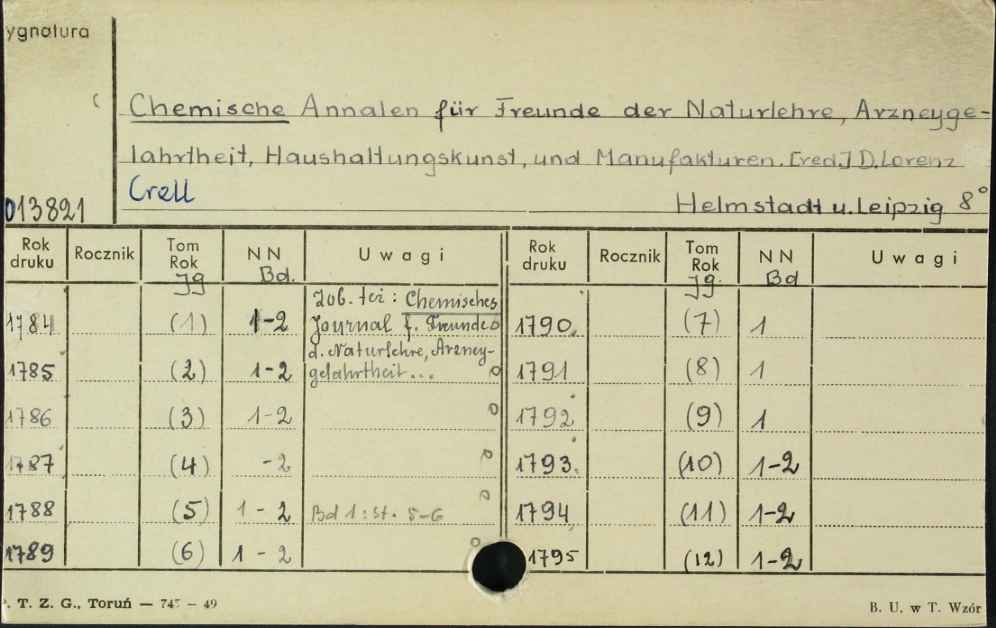 ygnatura
Chemische Annalen für Freunde der Naturlehre, Arzneyge-
lahrtheit, Haushaltungskunst, und Manufakturen. [red.] D. Lorenz
Crell
013821 Helmstadt u. Leipzig 8°
Rok druku Rocznik Tom Rok Jg NN Bd. Uwagi Rok druku Rocznik Tom Rok Jg. NN Bd Uwagi
Zob. też: Chemisches
1784 (1) 1-2 Journal f. Freunde 1790. (7) 1
d. Naturlehre, Arzney-
1785 (2) 1-2 gelahrtheit... 1791 (8) 1
1786 (3) 1-2 1792 (9) 1
1787 (4) -2 1793. (10) 1-2
1788 (5) 1-2 Bd 1: St. 5-6 1794 (11) 1-2
1789 (6) 1-2 1795 (12) 1-2
. T. Z. G., Toruń — 745 — 49 B. U. w T. Wzór